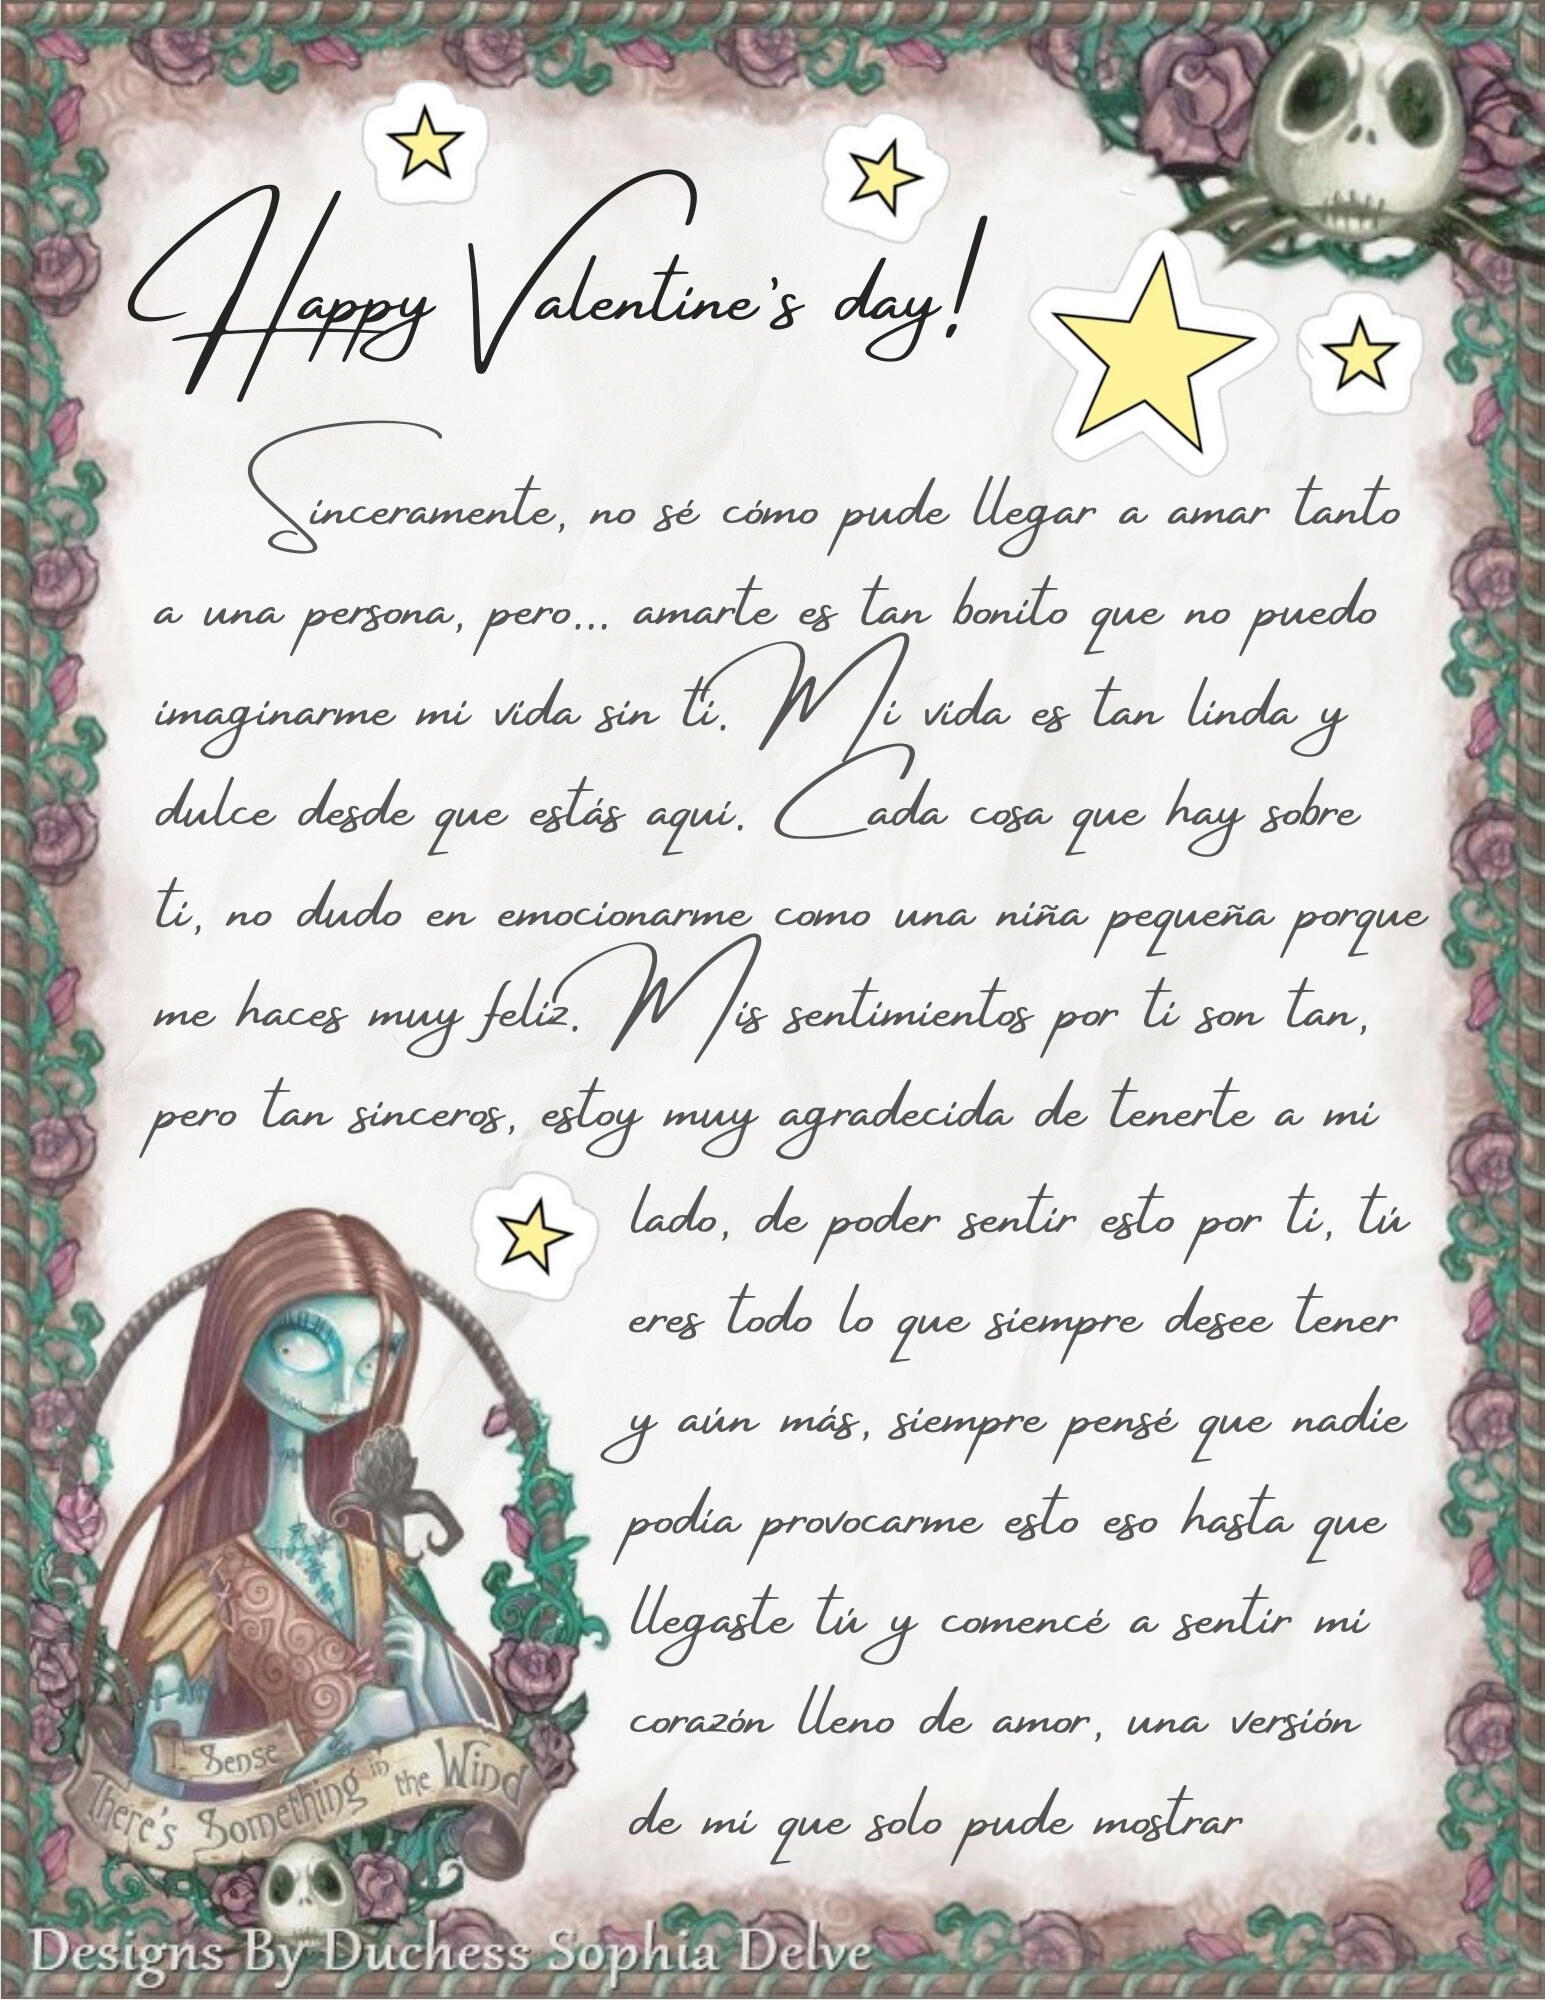 Happy Valentine's day!
Sinceramente, no sé cómo pude llegar a amar tanto
a una persona, pero... amarte es tan bonito que no puedo
imaginarme mi vida sin ti. Mi vida es tan linda y
dulce desde que estás aquí. Cada cosa que hay sobre
ti, no dudo en emocionarme como una niña pequeña porque
me haces muy feliz. Mis sentimientos por ti son tan,
pero tan sinceros, estoy muy agradecida de tenerte a mi
lado, de poder sentir esto por ti, tú
eres todo lo que siempre desee tener
y aún más, siempre pensé que nadie
podía provocarme esto eso hasta que
llegaste tú y comencé a sentir mi
corazón lleno de amor, una versión
de mí que solo pude mostrar
I Sense
There's Something in the Wind
Designs By Duchess Sophia Delve